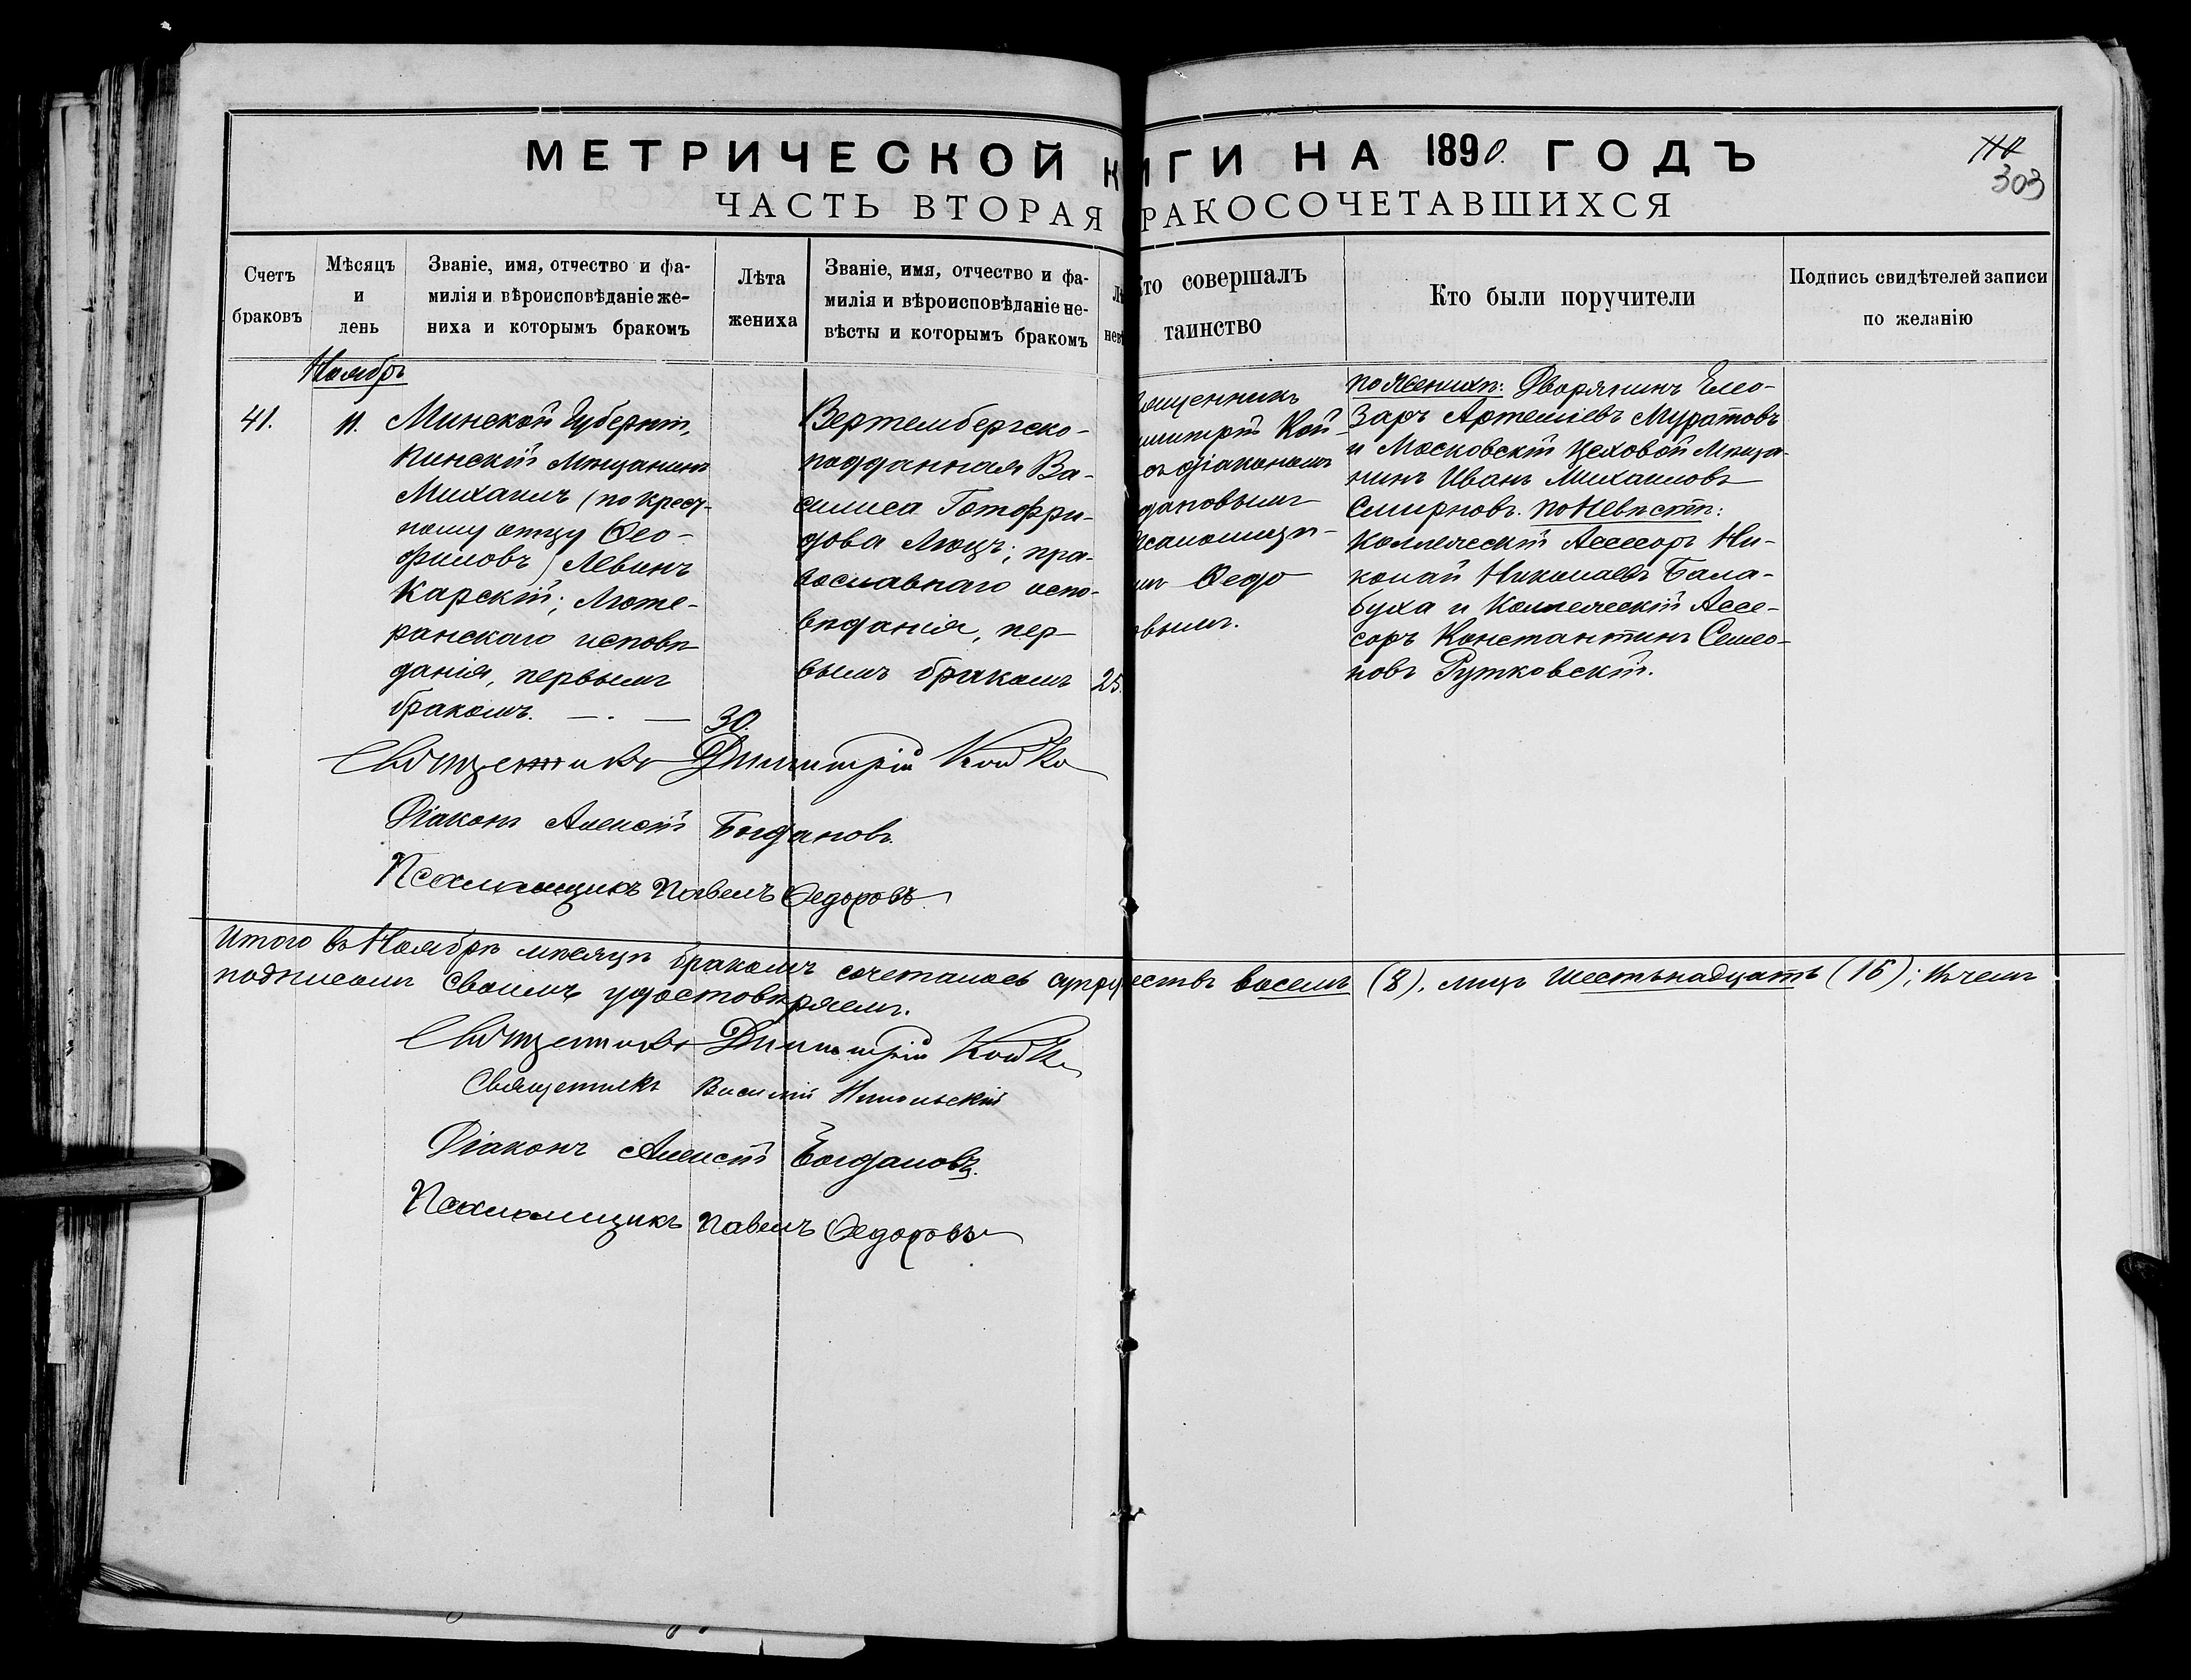 МЕТРИЧЕСКОЙ К
ИГИ НА 1890. ГОДЪ
110
303
ЧАСТЬ ВТОРАЯ
РАКОСОЧЕТАВШИХСЯ
Счетъ
браковъ
Мѣсяцъ
и
день
Званіе, имя, отчество и фа-
милія и вѣроисповѣданіе же-
ниха и которымъ бракомъ
Лѣта
жениха
Званіе, имя, отчество и фа-
милія и вѣроисповѣданіе не-
вѣсты и которымъ бракомъ
то совершалъ
таинство
Кто были поручители
Подпись свидѣтелей записи
по желанію
Ноябрь
41.
11.
Минской Губерніи,
Пинскій Мѣщанинъ
Михаилъ (по крест-
ному отцу Ѳео-
филовъ) Левинъ
Карскій; Люте-
ранскаго исповѣ
данія, первымъ
бракомъ. — . —
30.
Вертембергско-
подданная Ва-
силиса Готофри-
дова Люцъ; пра-
вославнаго испо-
вѣданія, пер-
вымъ бракомъ
25.
ященникъ
имитрій Кой-
съ діакономъ
дановымъ
саломщи-
мъ Ѳедо
овымъ.
по Женихѣ: Дворянинъ Елео-
заръ Артеміевъ Муратовъ
и Московскій Цеховой Мѣща-
нинъ Иванъ Михаиловъ
Смирновъ. по Невѣстѣ:
Коллежскій Ассесоръ Ни-
колай Николаевъ Бала-
буха и Коллежскій Ассе-
соръ Константинъ Семео-
новъ Рутковскій.
Священникъ Димитрій Койко
Діаконъ Алексій Богдановъ.
Псаломщикъ Павелъ Ѳедоровъ.
Итого въ Ноябрѣ мѣсяцѣ бракомъ сочеталось супружествъ восемь (8), лицъ шестьнадцать (16); въ чемъ
подписомъ своимъ удостовѣряемъ.
Священникъ Димитрій Койко
Священникъ Василій Никольскій
Діаконъ Алексій Богдановъ.
Псаломщикъ Павелъ Ѳедоровъ